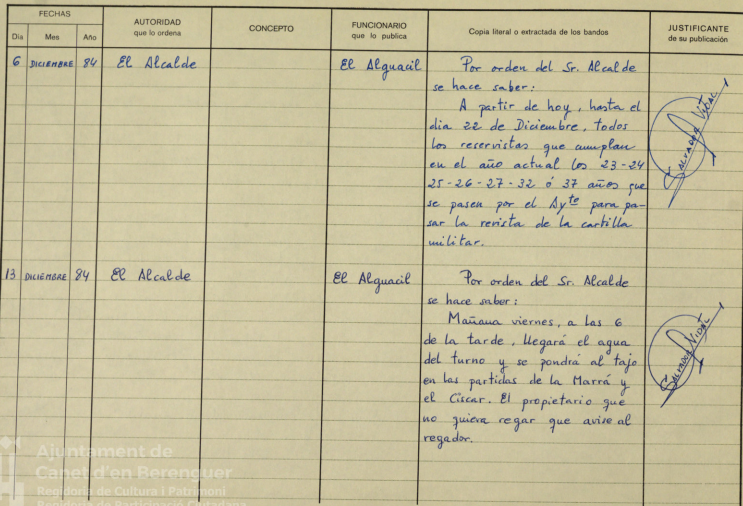 FECHAS
AUTORIDAD
que lo ordena
CONCEPTO
FUNCIONARIO
que lo publica
Copia literal o extractada de los bandos
JUSTIFICANTE
de su publicación
Día Mes Año
6 DICIEMBRE 84 El Alcalde El Alguacil Por orden del Sr. Alcalde
se hace saber:
A partir de hoy, hasta el
dia 22 de Diciembre, todos
los reservistas que cumplan
en el año actual los 23-24
25-26-27-32 ó 37 años que
se pasen por el Ayto para pa-
sar la revista de la cartilla
militar.
SALVADOR VIDAL
13 DICIEMBRE 84 El Alcalde El Alguacil Por orden del Sr. Alcalde
se hace saber:
Mañana viernes, a las 6
de la tarde, llegará el agua
del turno y se pondrá al tajo
en las partidas de la Marrá y
el Ciscar. El propietario que
no quiera regar que avise al
regador.
SALVADOR VIDAL
Ajuntament de
Canet d'en Berenguer
Regidoria de Cultura i Patrimoni
Regidoria de Participació Ciutadana